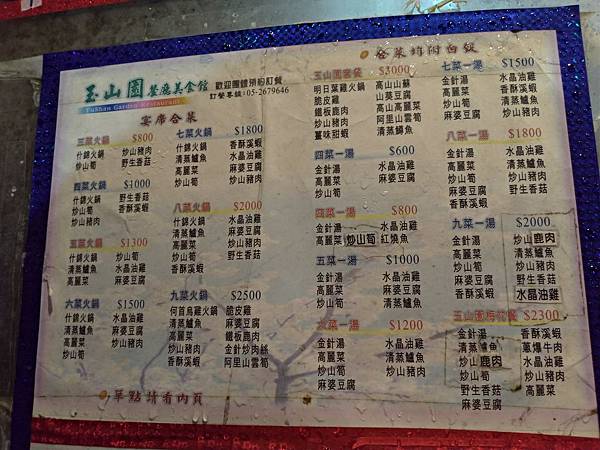 玉山園餐廳美食館
Yushan Garden Restaurant
歡迎團體預約訂餐
訂餐專線:05-2679646
宴席合菜
三菜火鍋 $800
什錦火鍋 炒山豬肉
炒山筍 野生香菇
四菜火鍋 $1000
什錦火鍋 野生香菇
炒山筍 香酥溪蝦
炒山豬肉
五菜火鍋 $1300
什錦火鍋 炒山筍
清蒸鱸魚 水晶油雞
高麗菜 麻婆豆腐
六菜火鍋 $1500
什錦火鍋 水晶油雞
清蒸鱸魚 麻婆豆腐
高麗菜 炒山豬肉
炒山筍
七菜火鍋 $1800
什錦火鍋 香酥溪蝦
清蒸鱸魚 水晶油雞
高麗菜 麻婆豆腐
炒山筍 炒山豬肉
八菜火鍋 $2000
什錦火鍋 水晶油雞
清蒸鱸魚 麻婆豆腐
高麗菜 炒山豬肉
炒山筍 野生香菇
香酥溪蝦
九菜火鍋 $2500
何首烏雞火鍋 脆皮雞
清蒸鱸魚 麻婆豆腐
高麗菜 鐵板鹿肉
炒山豬肉 金針炒肉絲
香酥溪蝦 阿里山雲筍
單點請看內頁
合菜均附白飯
玉山園套餐 $3000
明日葉雞火鍋 高山山蘇
脆皮雞 山葵豆腐
鐵板鹿肉 高山高麗菜
炒山豬肉 阿里山雲筍
薑味甜蝦 清蒸鱘魚
四菜一湯 $600
金針湯 水晶油雞
高麗菜 麻婆豆腐
炒山筍
四菜一湯 $800
金針湯 水晶油雞
高麗菜 炒山筍 紅燒魚
五菜一湯 $1000
金針湯 水晶油雞
高麗菜 清蒸鱸魚
炒山筍 麻婆豆腐
六菜一湯 $1200
金針湯 水晶油雞
高麗菜 清蒸鱸魚
炒山筍 炒山豬肉
麻婆豆腐
七菜一湯 $1500
金針湯 水晶油雞
高麗菜 清蒸鱸魚
炒山筍 炒山豬肉
香酥溪蝦 麻婆豆腐
八菜一湯 $1800
金針湯 水晶油雞
高麗菜 清蒸鱸魚
炒山筍 炒山豬肉
麻婆豆腐 野生香菇
香酥溪蝦
九菜一湯 $2000
金針湯 炒山鹿肉
高麗菜 清蒸鱸魚
炒山筍 炒山豬肉
麻婆豆腐 野生香菇
香酥溪蝦 水晶油雞
玉山園梅花餐 $2300
金針湯 香酥溪蝦
清蒸鱸魚 蔥爆牛肉
炒山鹿肉 水晶油雞
炒山筍 炒山豬肉
野生香菇 高麗菜
麻婆豆腐